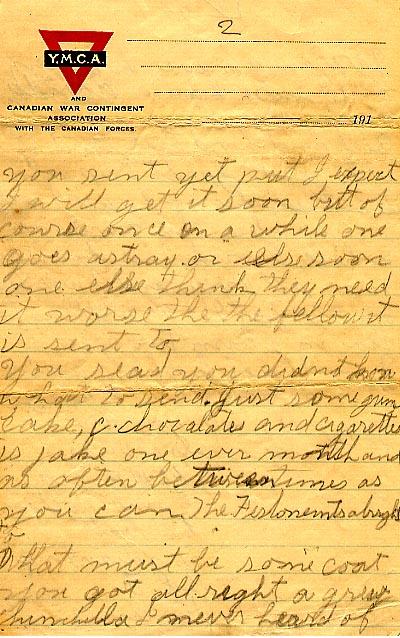 2
Y.M.C.A.
AND
CANADIAN WAR CONTINGENT
ASSOCIATION
WITH THE CANADIAN FORCES.
191
you sent yet put I expect
I will get it soon but of
course once on a while one
goes astray or else soon
one else think they need
it worse the the fellow it
is sent to
You read you didn't know
what to send. Just some gum
cake, chocolates and cigarettes
is jake one ever month and
as often between times as
you can The
That must be some coat
you got all right a grey
chinchilla I never heard of